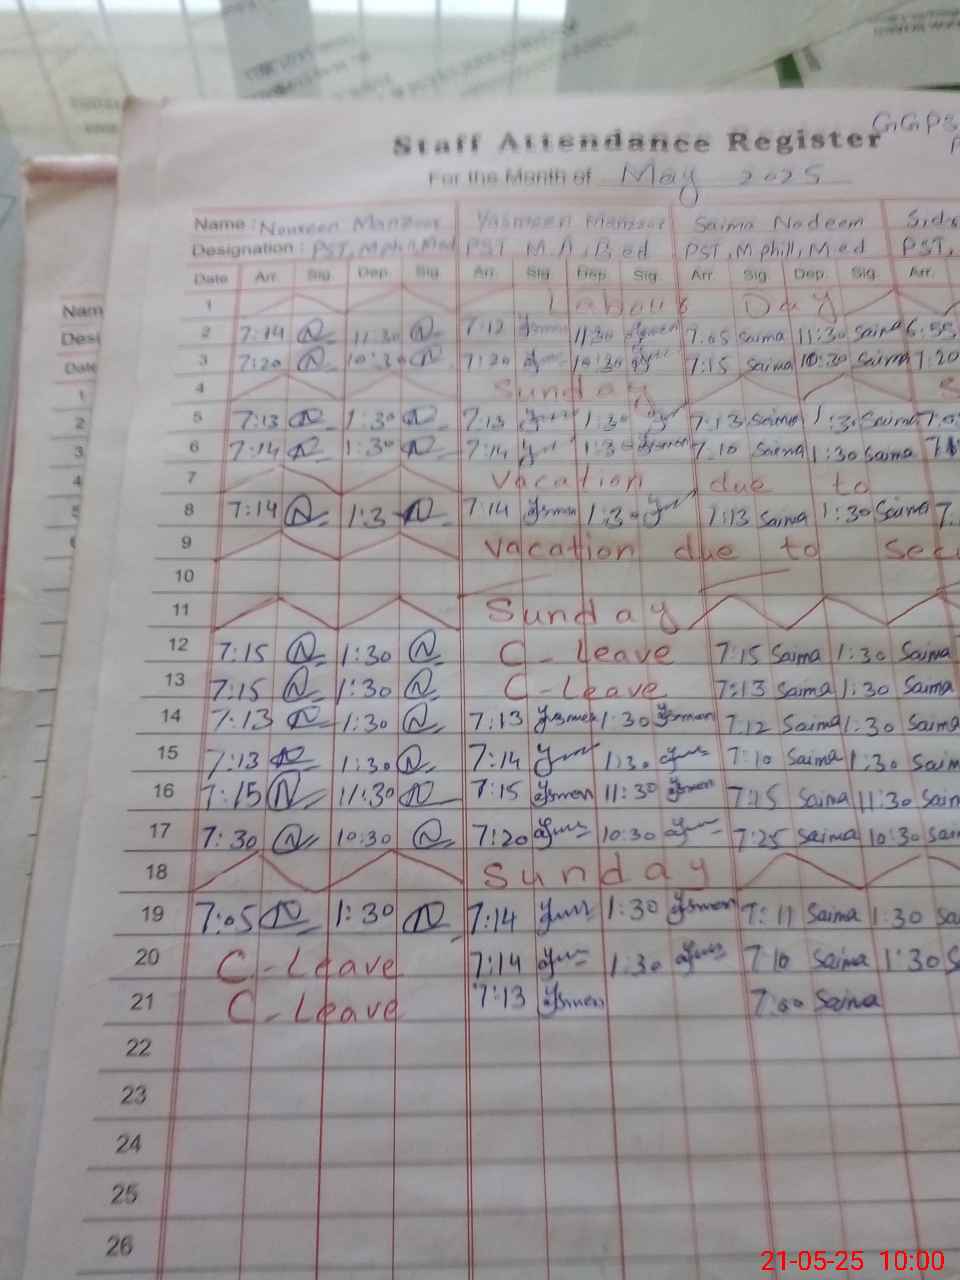 GGPS
Staff Attendance Register
For the Month of May 2025
Name : Noureen Manzoor Yasmeen Manzoor Saima Nadeem
Designation : PST, M.phil, Med PST M.A, B.ed PST, M phill, M.ed PST,
Date Arr. Sig. Dep. Sig. Arr. Sig. Dep. Sig. Arr. Sig. Dep. Sig. Arr.
1 Labour Day
2 7:14 N 11:30 N 7:12 11:30 7:05 Saima 11:30 Saima 6:55
3 7:20 N 10:30 N 7:20 10:30 7:15 Saima 10:30 Saima 7:20
4 Sunday S
5 7:13 N 1:30 N 7:13 1:30 7:13 Saima 1:30 Saima
6 7:14 N 1:30 N 7:14 1:30 7:10 Saima 1:30 Saima
7 Vacation due to
8 7:14 N 1:30 N 7:14 Ysmen 1:30 7:13 Saima 1:30 Saima 7.
9 Vacation due to Secu
10
11 Sunday
12 7:15 N 1:30 N C-Leave 7:15 Saima 1:30 Saima
13 7:15 N 1:30 N C-Leave 7:13 Saima 1:30 Saima
14 7:13 N 1:30 N 7:13 Ysmen 1:30 Ysmen 7:12 Saima 1:30 Saima
15 7:13 N 1:30 N 7:14 1:30 7:10 Saima 1:30 Saim
16 7:15 N 11:30 N 7:15 Ysmen 11:30 Ysmen 7:15 Saima 11:30 Sain
17 7:30 N 10:30 N 7:20 10:30 7:25 Saima 10:30 Sai
18 Sunday
19 7:05 N 1:30 N 7:14 1:30 Ysmen 7:11 Saima 1:30 Sa
20 C-Leave 7:14 1:30 7:10 Saima 1:30 S
21 C-Leave 7:13 Ysmen 7:00 Saima
22
23
24
25
26
Nam
Desi
Date
1
2
3
4
5
21-05-25 10:00